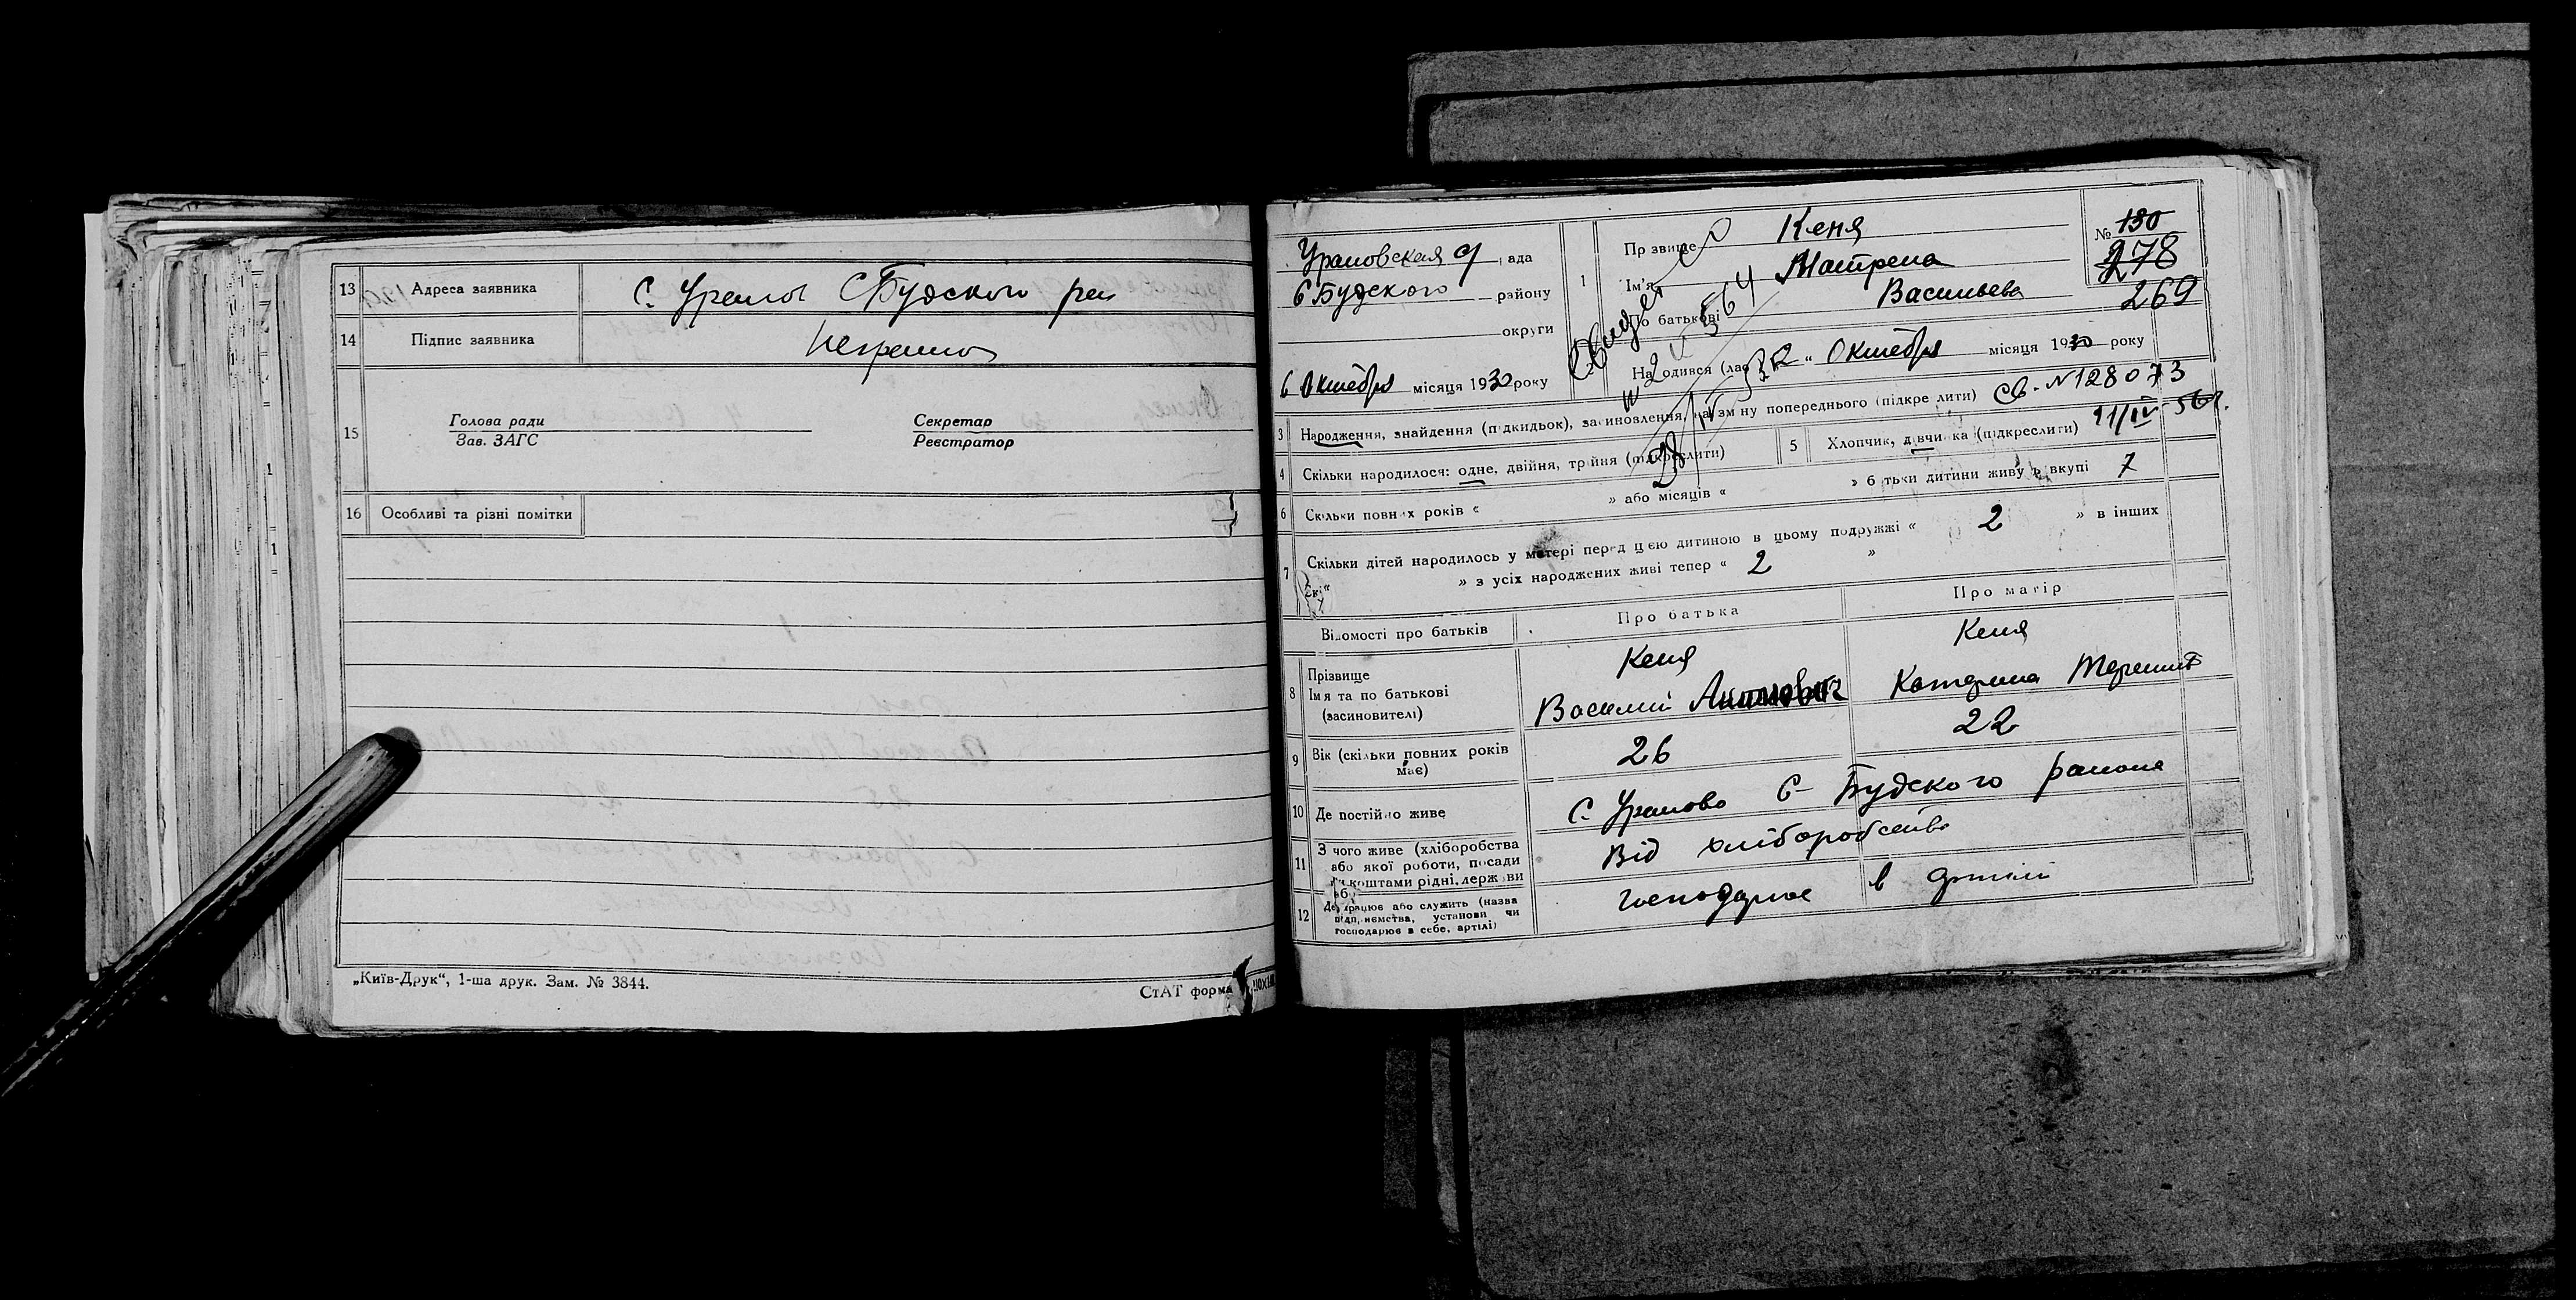 13 Адреса заявника С. Уралов СБудского рай
14 Підпис заявника Неграмот
15 Голова ради Секретар
Зав. ЗАГС Реєстратор
16 Особливі та різні помітки
„Київ-Друк“, 1-ша друк. Зам. № 3844.
СтАТ форма
Ураловская рада
СБудского району
округи
6 Октября місяця 1930 року
1 Прзвище Кеня
Ім'я Матрена
По батькові Васильева
№ 130
278
269
Народився (лась) 2 Октября місяця 1930 року
св. N 128073
11/IV-56г.
3 Народження, знайдення (підкидьок), засиновлення, зміну попереднього (підкреслити)
4 Скільки народилося: одне, двійня, трійня (підкреслити) 5 Хлопчик, дівчинка (підкреслити)
6 Скільки повних років « » або місяців « » батьки дитини живуть вкупі
7 Скільки дітей народилось у матері перед цією дитиною в цьому подружжі « 2 » в інших
» з усіх народжених живі тепер « 2 »
Відомості про батьків Про батька Про матір
8 Прізвище Кеня Кеня
Імя та по батькові Василий Катерина
(засиновителі)
9 Вік (скільки повних років має) 26 22
10 Де постійно живе С. Уралово С-Будского района
11 З чого живе (хліборобства або якої роботи, посади чи коштами рідні, держави Від хліборобства
12 Де працює або служить (назва підприємства, установи чи господарює в себе, артілі) господарює в